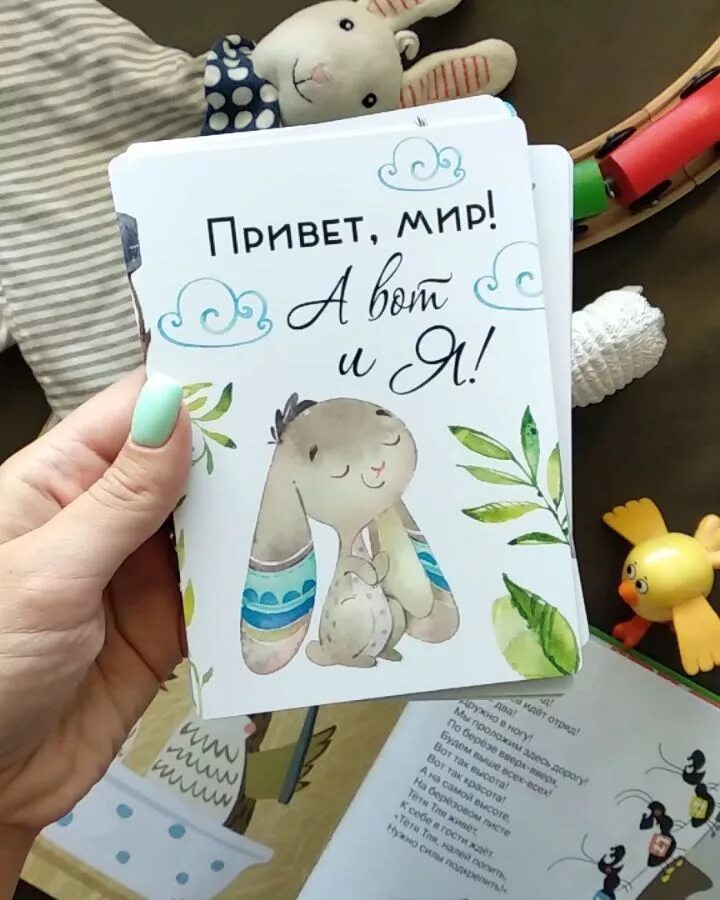 Привет, мир!
А вот
и Я!
идёт отряд!
два!
Дружно в ногу!
Мы проложим здесь дорогу!
По берёзе вверх-вверх,
Будем выше всех-всех!
Вот так высота!
Вот так красота!
А на самой высоте,
На берёзовом листе
Тётя Тля живёт,
К себе в гости ждёт.
«Тётя Тля, налей попить,
Нужно силы подкрепить!»